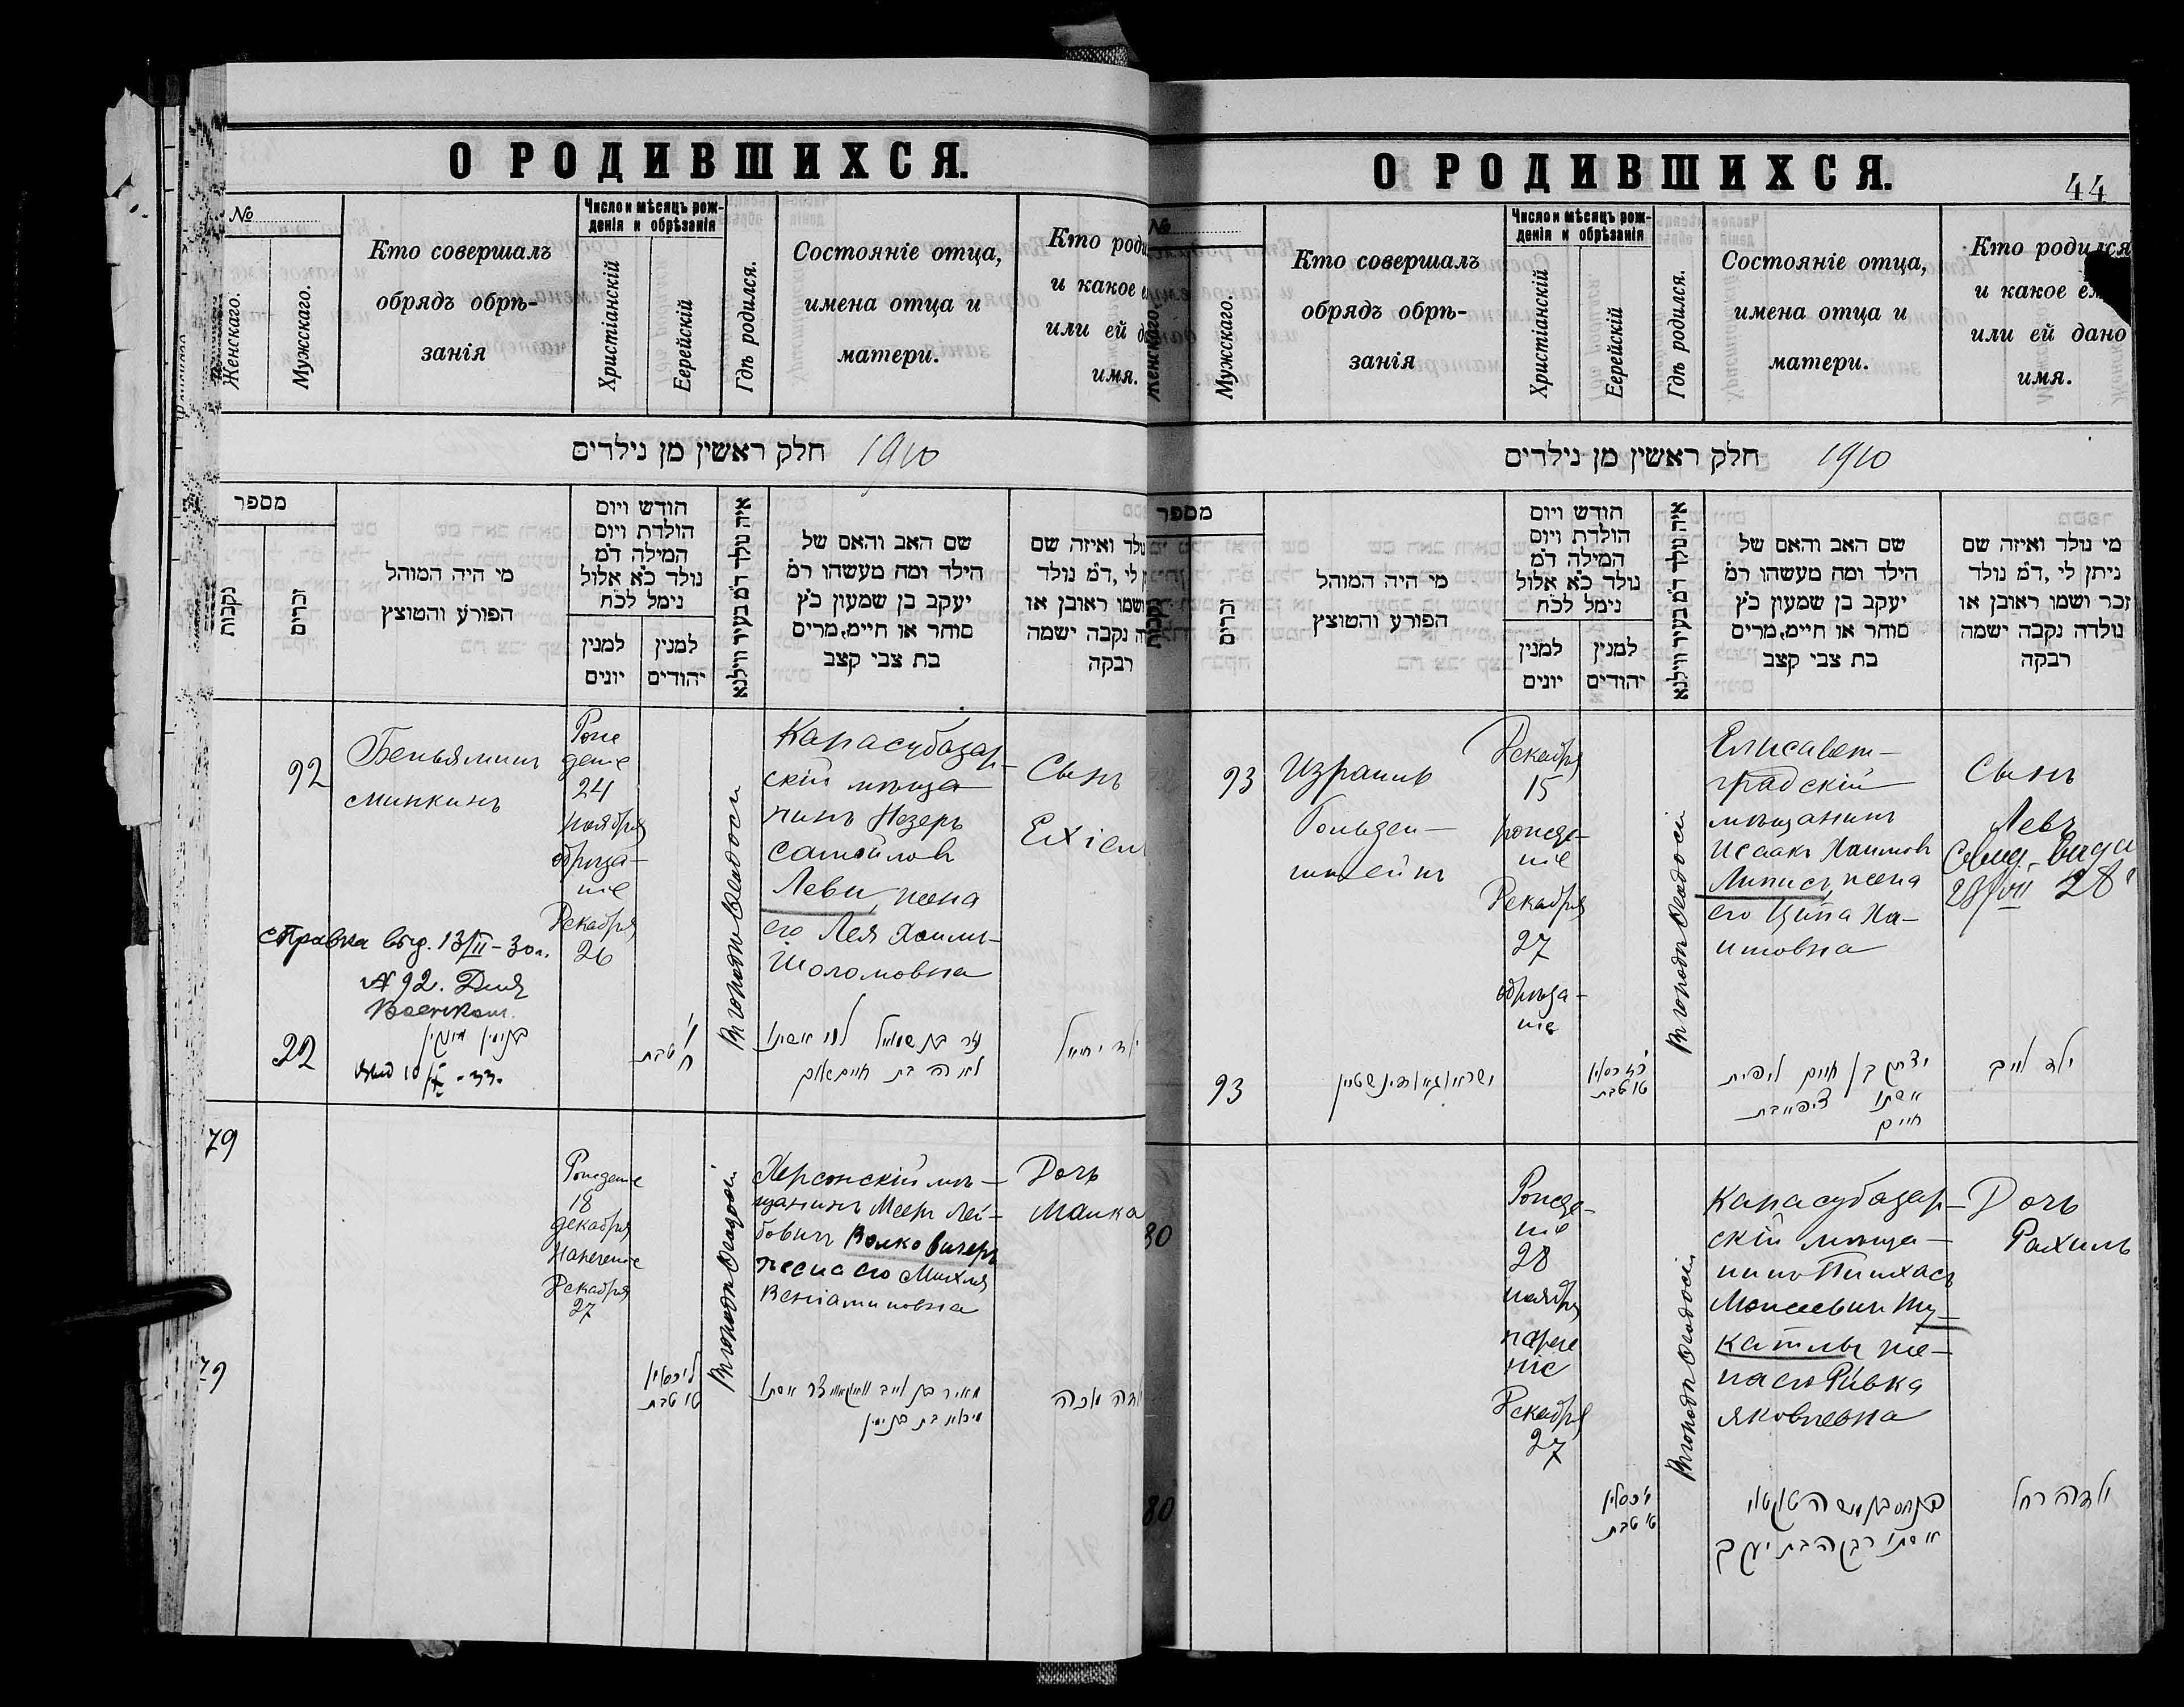 О РОДИВШИХСЯ.
№
Женскаго.
Мужскаго.
Кто совершалъ
обрядъ обрѣ-
занія
Число и мѣсяцъ рож-
денія и обрѣзанія
Христіанскій
Еерейскій
Гдѣ родился.
Состояніе отца,
имена отца и
матери.
Кто роди
и какое е
или ей д
имя.
חלק ראשין מן נילדים 1910
מספר
נקבות
זכרים
מי היה המוהל
הפורע והטוצץ
הודש ויום
הולדת ויום
המילה ד״מ
נולד כ״א אלול
נימל לכ״ח
למנין
יונים
למנין
יהודים
איה נולד ד״מ בעיר ווילנא
שם האב והאם של
הילד ומה מעשהו ר״מ
יעקב בן שמעון כ״ץ
סוחר או חיימ, מרים
בת צבי קצב
נולד ואיזה שם
לי, ד״מ נולד
ושמו ראובן או
נקבה ישמה
רבקה
92
Беньяминъ
Минкинъ
Рож
деніе
24
ноября
обрѣза-
ніе
Декабря
26
Въ городѣ Ѳеодосіи
Карасубазар-
скій мѣща-
нинъ Незеръ
Самойловъ
Леви, жена
его Лея Хаимъ-
Шоломовна
Сынъ
Ехіел
Справка выд. 13/II-30г.
№ 92. Для
Военком.
בנימין מינקין
22
טבת
79
Рожденіе
18
декабря
Нареченіе
Декабря
27
Въ городѣ Ѳеодосіи
Херсонскій мѣ-
щанинъ Мееръ Лей-
бовичъ Волковичеръ
жена его Михля
Веніаминовна
Дочь
Малка
79
ליכסליו
טו טבת
О РОДИВШИХСЯ.
44
№
Женскаго.
Мужскаго.
Кто совершалъ
обрядъ обрѣ-
занія
Число и мѣсяцъ рож-
денія и обрѣзанія
Христіанскій
Еерейскій
Гдѣ родился.
Состояніе отца,
имена отца и
матери.
Кто родился
и какое ем
или ей дано
имя.
חלק ראשין מן נילדים 1910
מספר
זכרים
מי היה המוהל
הפורע והטוצץ
הודש ויום
הולדת ויום
המילה ד״מ
נולד כ״א אלול
נימל לכ״ח
למנין
יונים
למנין
יהודים
איה נולד ד״מ בעיר ווילנא
שם האב והאם של
הילד ומה מעשהו ר״מ
יעקב בן שמעון כ״ץ
סוחר או חיימ, מרים
בת צבי קצב
מי נולד ואיזה שם
ניתן לי, ד״מ נולד
זכר ושמו ראובן או
נולדה נקבה ישמה
רבקה
93
Израиль
Гольден-
штейнъ
Декабря
15
рожде-
ніе
Декабря
27
обрѣза-
ніе
Въ городѣ Ѳеодосіи
Елисавет-
градскій
мѣщанинъ
Исаакъ Хаимовъ
Липисъ, жена
его Ципа Ха-
имовна
Сынъ
Левъ
28/VII 28
93
טו טבת
יצחק בן חיים ליפיס
אשתו ציפא בת
חיים
ילד לייב
80
Рожде-
ніе
28
ноября
нарече
ніе
Декабря
27
Въ городѣ Ѳеодосіи
Карасубазар-
скій мѣща-
нинъ Пинхасъ
Моисеевичъ Ту-
катлы, же-
на его Ривка
Яковлевна
Дочь
Рахиль
80
טו טבת
אשתו רבקה בת יעקב
ילדה רחל